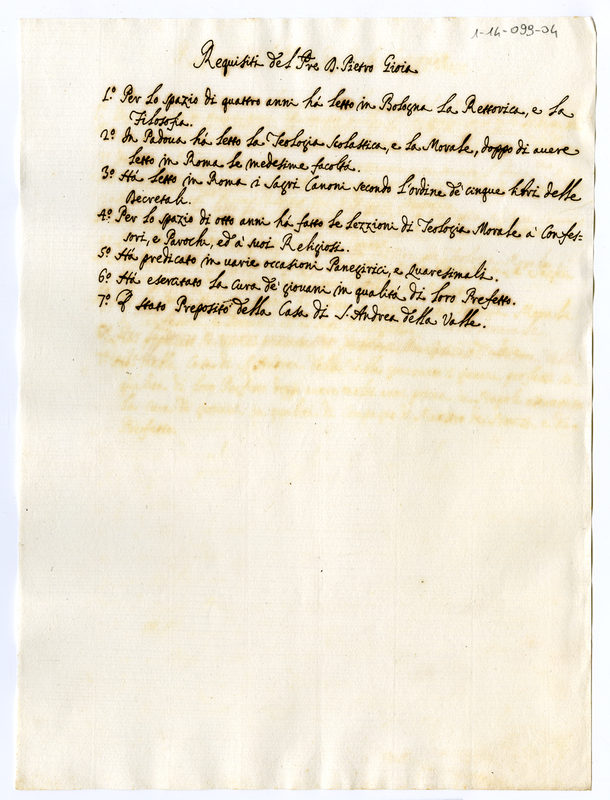 1-14-099-04
Requisiti del Pre D. Pietro Gioia
1.º Per lo spazio di quattro anni há letto in Bologna la Rettorica, e la
Filosofia.
2.º In Padova há letto la Teologia Scolastica, e la Morale, doppo di avere
letto in Roma le medesime facoltá.
3.º Há letto in Roma i Sagri Canoni secondo l'ordine de' cinque libri delle
Decretali.
4.º Per lo spazio di otto anni há fatto le Lezzioni di Teologia Morale a' Confes=
sori, e Parochi, ed a' suoi Religiosi.
5.º Há predicato in varie occasioni Panegirici, e Quaresimali.
6.º Há esercitato la Cura de' giovani in qualitá di loro Prefetto.
7.º É stato Preposito della Casa di S. Andrea della Valle.